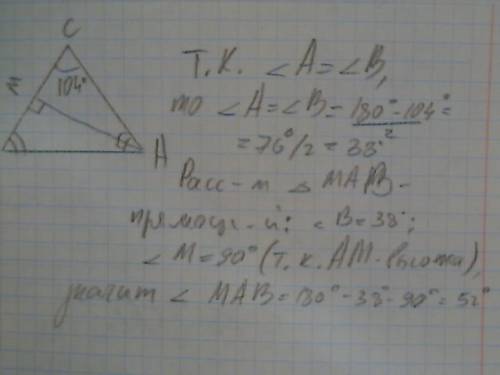 C
M
104°
A
Т.К. ∠A=∠B,
то ∠A=∠B= 180°-104° =
2
= 76°/2 = 38°
Расс-м △ MAB -
прямоуг-й: ∠B=38°;
∠M=90° (т.к. AM-высота),
значит ∠ MAB=180°-38°-90°=52°